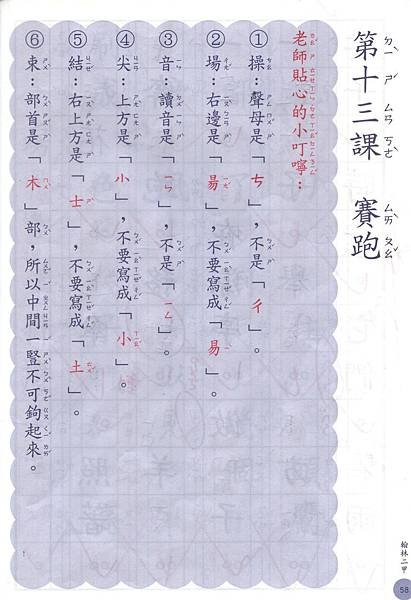 第十三課　賽跑
老師貼心的小叮嚀：
①操：聲母是「ㄘ」，不是「ㄔ」。
②場：右邊是「昜」，不要寫成「易」。
③音：讀音是「ㄧㄣ」，不是「ㄧㄥ」。
④尖：上方是「小」，不要寫成「小」。
⑤結：右上方是「士」，不要寫成「土」。
⑥束：部首是「木」部，所以中間一豎不可鉤起來。
翰林二甲
58